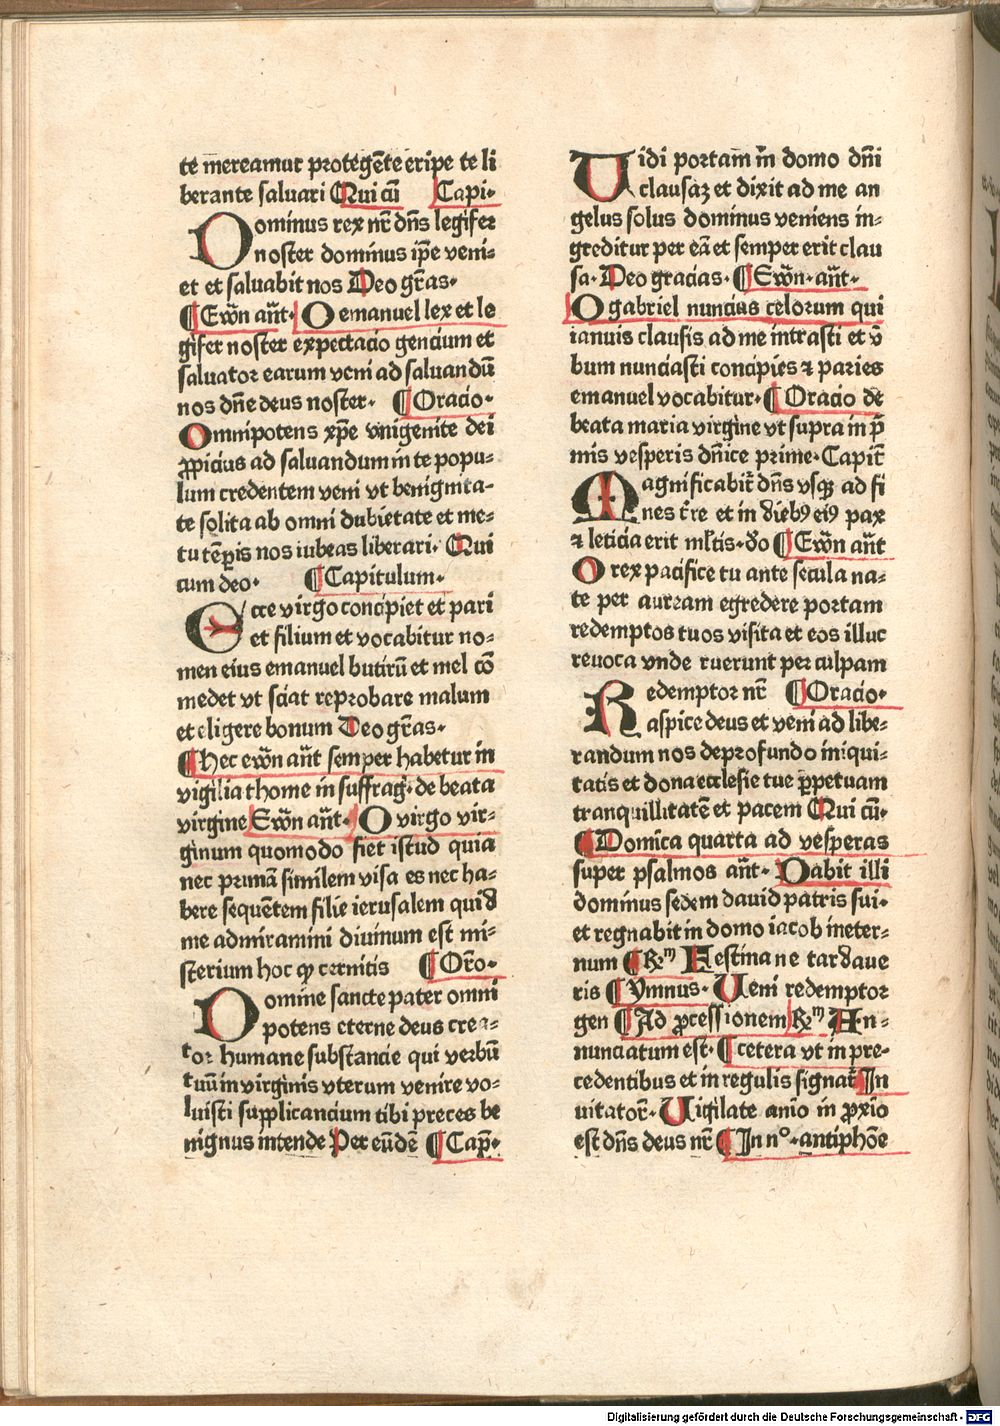 te mereamur protegẽte eripe te li
berante saluari Qui cũ Capi⸗
Dominus rex nr̃ dñs legifer
noster dominus ip̃e veni⸗
et et saluabit nos Deo gr̃as.
¶ Ewñ añt. O emanuel lex et le
gifer noster expectacio gencium et
saluator earum veni ad saluandũ
nos dñe deus noster. ¶ Oracio.
Omnipotens xp̃e vnigenite dei
ꝓpicius ad saluandum in te popu⸗
lum credentem veni vt benignita⸗
te solita ab omni dubietate et me⸗
tu tẽꝑis nos iubeas liberari. Qui
cum deo. ¶ Capitulum.
Ecce virgo concipiet et pari
et filium et vocabitur no⸗
men eius emanuel butirũ et mel cõ
medet vt sciat reprobare malum
et eligere bonum Deo gr̃as.
¶ Hec ewñ añt semper habetur in
vigilia thome in suffrag̃. de beata
virgine Ewñ añt. O virgo vir⸗
ginum quomodo fiet istud quia
nec primã similem visa es nec ha⸗
bere sequẽtem filie ierusalem quid
me admiramini diuinum est mi⸗
sterium hoc qɔ cernitis ¶ Or̃o.
Domine sancte pater omni
potens eterne deus crea⸗
tor humane substancie qui verbũ
tuũ in virginis vterum venire vo⸗
luisti supplicancium tibi preces be
nignus intende Per eũdẽ ¶ Cap̃.
Vidi portam in domo dñi
clausaʒ et dixit ad me an
gelus solus dominus veniens in⸗
greditur per eã et semper erit clau
sa. Deo gracias. ¶ Ewñ. añt.
O gabriel nuncius celorum qui
ianuis clausis ad me intrasti et v̄
bum nunciasti concipies ⁊ paries
emanuel vocabitur. ¶ Oracio de
beata maria virgine vt supra in p̃
mis vesperis dñice prime. Capit̃
Magnificabit̃ dñs vsqꝫ ad fi
nes t̃re et in diebꝰ eiꝰ pax
⁊ leticia erit ml̃tis. do ¶ Ewñ añt
O rex pacifice tu ante secula na⸗
te per auream egredere portam
redemptos tuos visita et eos illuc
reuoca vnde ruerunt per culpam
Redemptor nr̃ ¶ Oracio.
aspice deus et veni ad libe⸗
randum nos de profundo iniqui
tatis et dona ecclesie tue ꝑpetuam
tranquillitatẽ et pacem Qui cũ.
¶ Domica quarta ad vesperas
super psalmos añt. Dabit illi
dominus sedem dauid patris sui.
et regnabit in domo iacob ineter⸗
num ¶ Rm̃ Festina ne tardaue
ris ¶ Ymnus. Veni redemptor
gen ¶ Ad ꝓcessionem Rm̃ An⸗
nunciatum est. ¶ cetera vt in pre⸗
cedentibus et in regulis signat̃ In
uitator̃. Vigilate animo in ꝓxio
est dñs deus nr̃ ¶ In n° . antiphõe
Digitalisierung gefördert durch die Deutsche Forschungsgemeinschaft - DFG